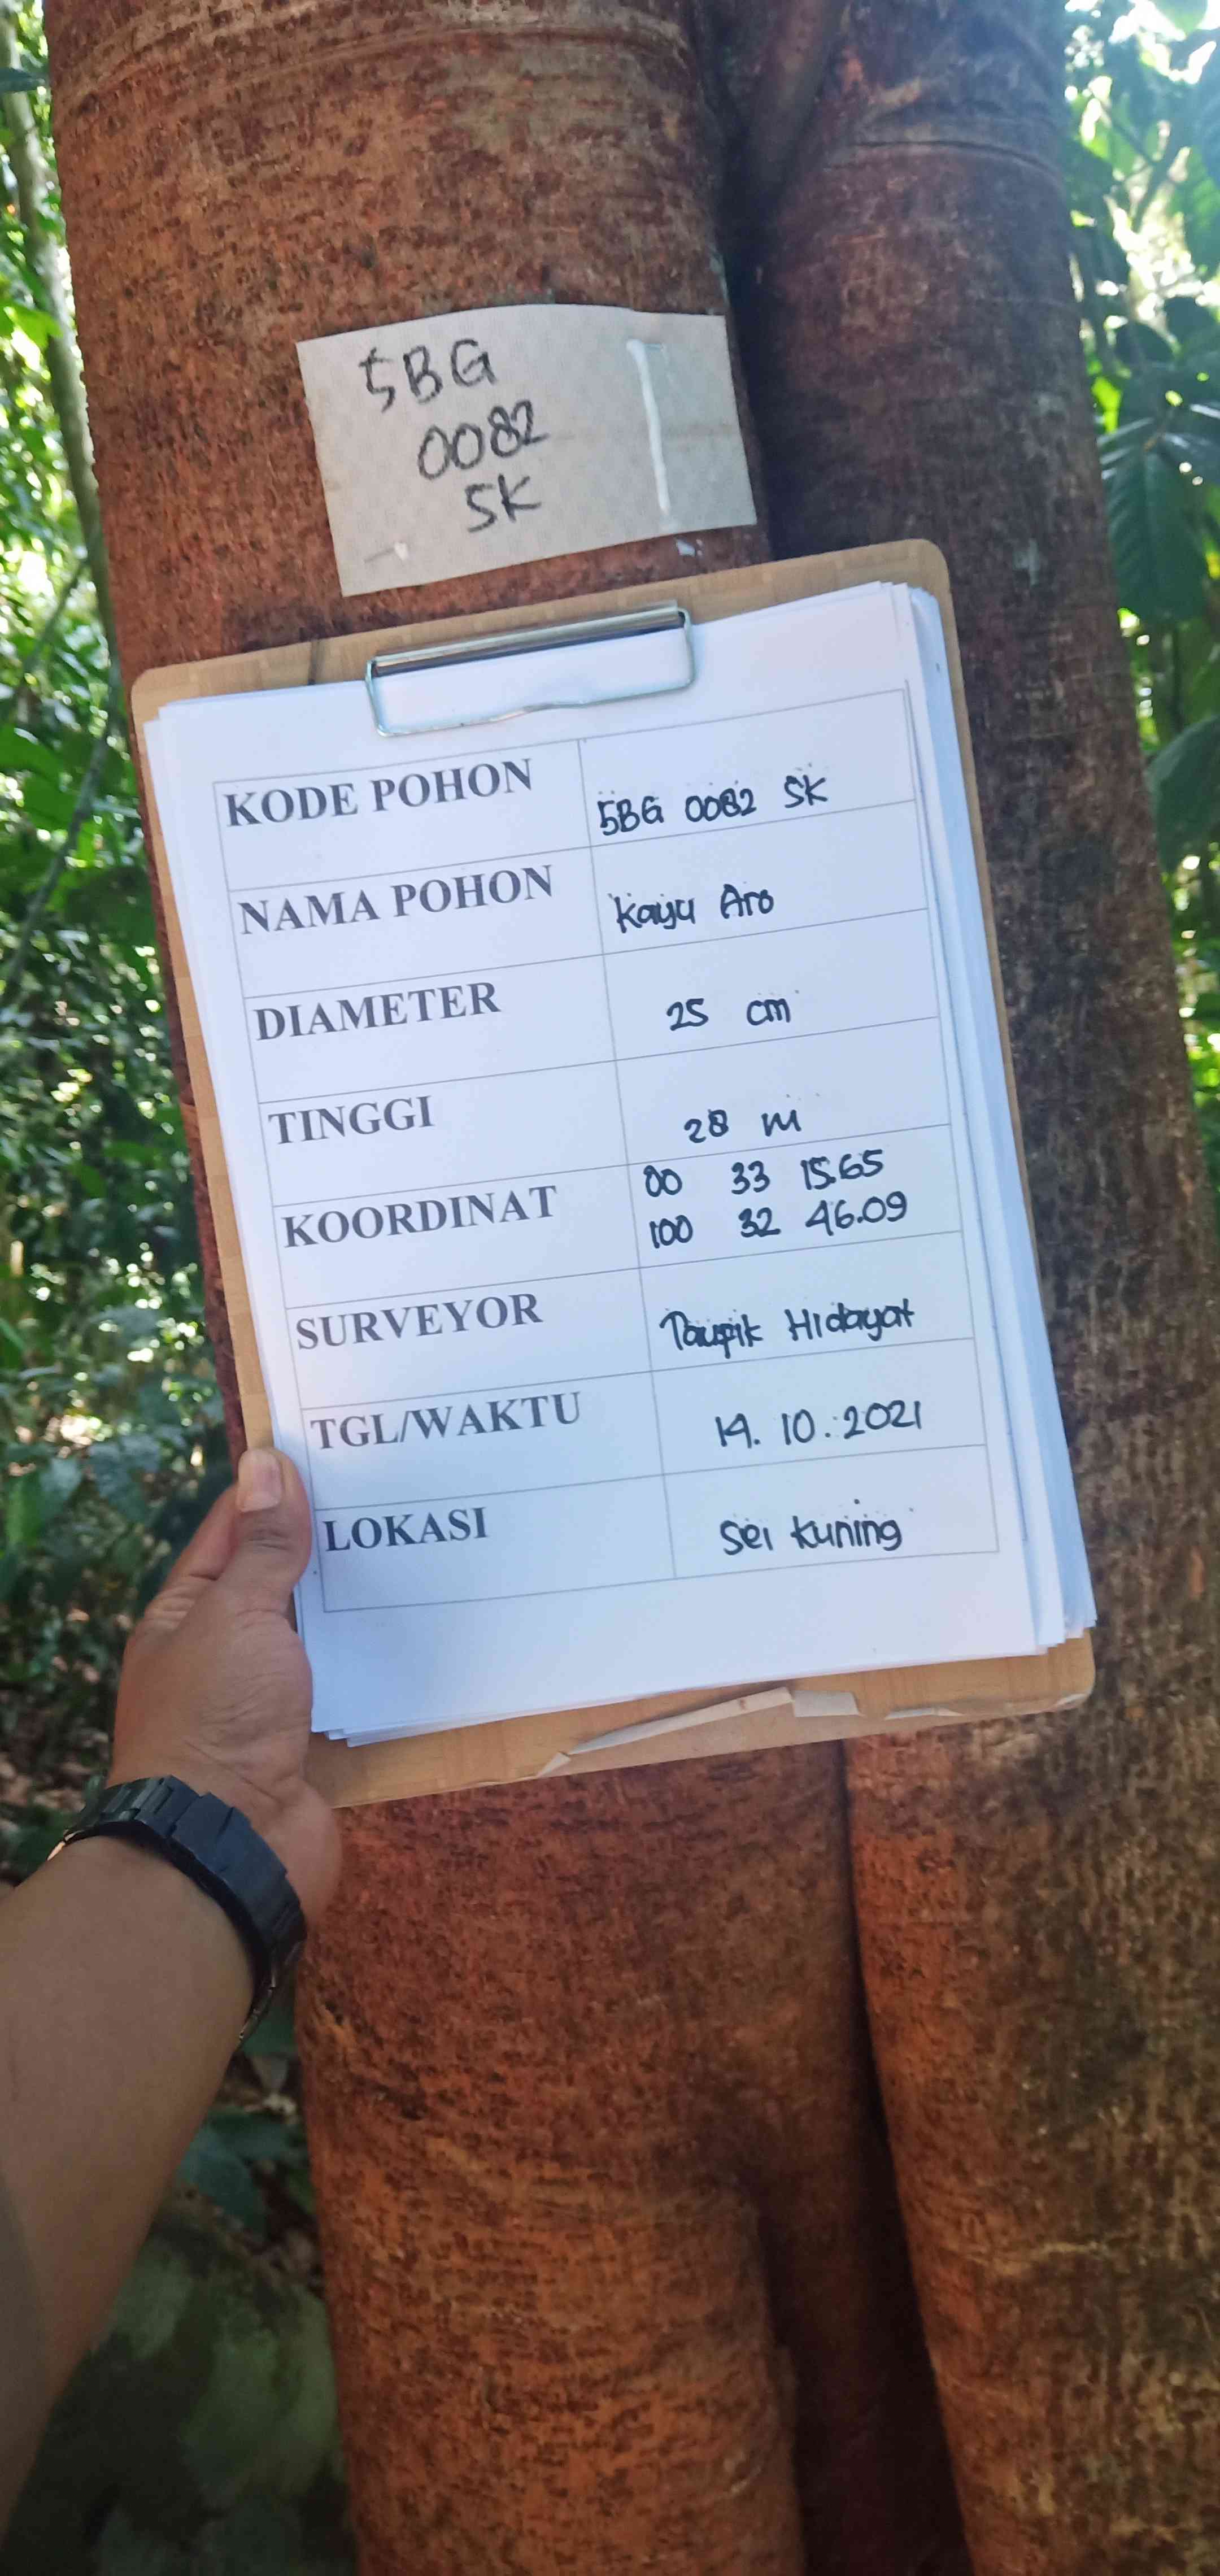 5BG
0082
SK
KODE POHON 5BG 0082 SK
NAMA POHON Kayu Aro
DIAMETER 25 cm
TINGGI 28 m
KOORDINAT 00 33 15.65
100 32 46.09
SURVEYOR Taupik Hidayat
TGL/WAKTU 14.10.2021
LOKASI Sei Kuning